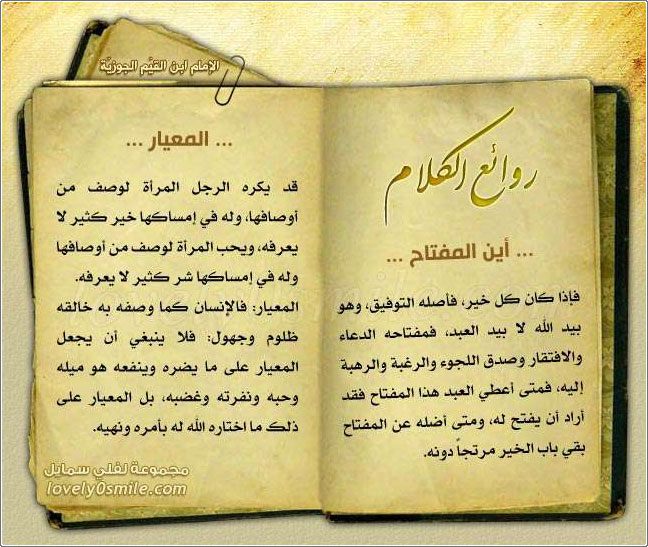 الإمام ابن القيّم الجوزيّة
روائع الكلام
... أين المفتاح ...
فإذا كان كل خير، فأصله التوفيق، وهو
بيد الله لا بيد العبد، فمفتاحه الدعاء
والافتقار وصدق اللجوء والرغبة والرهبة
إليه، فمتى أعطي العبد هذا المفتاح فقد
أراد أن يفتح له، ومتى أضله عن المفتاح
بقي باب الخير مرتجاً دونه.
... المعيار ...
قد يكره الرجل المرأة لوصف من
أوصافها، وله في إمساكها خير كثير لا
يعرفه، ويحب المرأة لوصف من أوصافها
وله في إمساكها شر كثير لا يعرفه.
المعيار: فالإنسان كما وصفه به خالقه
ظلوم وجهول: فلا ينبغي أن يجعل
المعيار على ما يضره وينفعه هو ميله
وحبه ونفرته وغضبه، بل المعيار على
ذلك ما اختاره الله له بأمره ونهيه.
مجموعة لفلي سمايل
lovely0smile.com